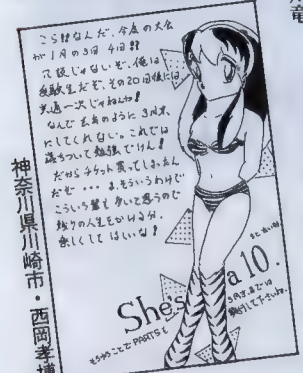 こら!!なんだ、今度の大会
が1月の3日 4日!?
て訳じゃないぞ、俺は
受験生だぞ、その20日後には
共通一次じゃねえか!
なんで去年のように3月末
にしてくれない。これでは
落ちついて勉強でけん!
だからチケット買ってしまったん
だぞ・・・ま、そういうわけで
こういう輩も多いと思うので
残りの人生をかける分、
楽しくしてほしいな!
She's a 10.
そういうことで PARTⅥも
3月末までは
神奈川県川崎市・西岡孝博
竜